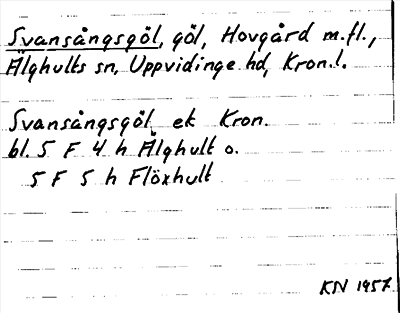 Svansångsgöl, göl, Hovgård m.fl.,
Älghults sn, Uppvidinge hd, Kron.l.
Svansångsgöl, ek Kron.
bl. 5 F 4 h Älghult o.
5 F 5 h Flöxhult
KN 1957